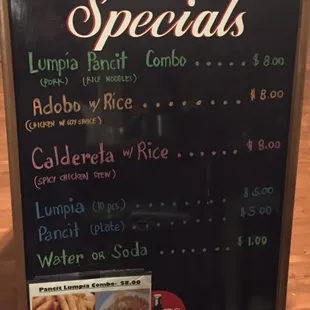 Specials
Lumpia Pancit Combo ..... $8.00
(PORK) (RICE NOODLES)
Adobo w/ Rice ........ $8.00
(CHICKEN W/ SOY SAUCE)
Caldereta w/ Rice ...... $8.00
(SPICY CHICKEN STEW)
Lumpia (10 pcs) ........ $5.00
Pancit (plate) ........ $5.00
Water or Soda ........ $1.00
Pancit Lumpia Combo: $8.00